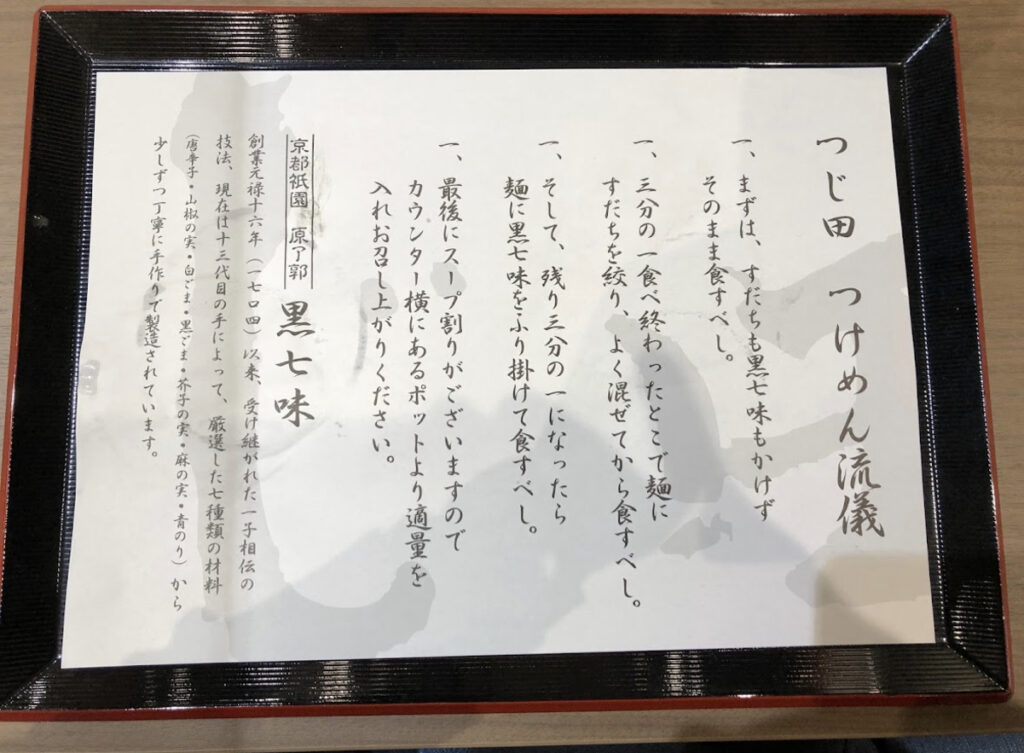 つじ田 つけめん流儀
一、まずは、すだちも黒七味もかけず
そのまま食すべし。
一、三分の一食べ終わったとこで麺に
すだちを絞り、よく混ぜてから食すべし。
一、そして、残り三分の一になったら
麺に黒七味をふり掛けて食すべし。
一、最後にスープ割りがございますので
カウンター横にあるポットより適量を
入れお召し上がりください。
京都祇園 原了郭 黒七味
創業元禄十六年(一七〇四)以来、受け継がれた一子相伝の
技法、現在は十三代目の手によって、厳選した七種類の材料
(唐辛子・山椒の実・白ごま・黒ごま・芥子の実・麻の実・青のり)から
少しずつ丁寧に手作りで製造されています。